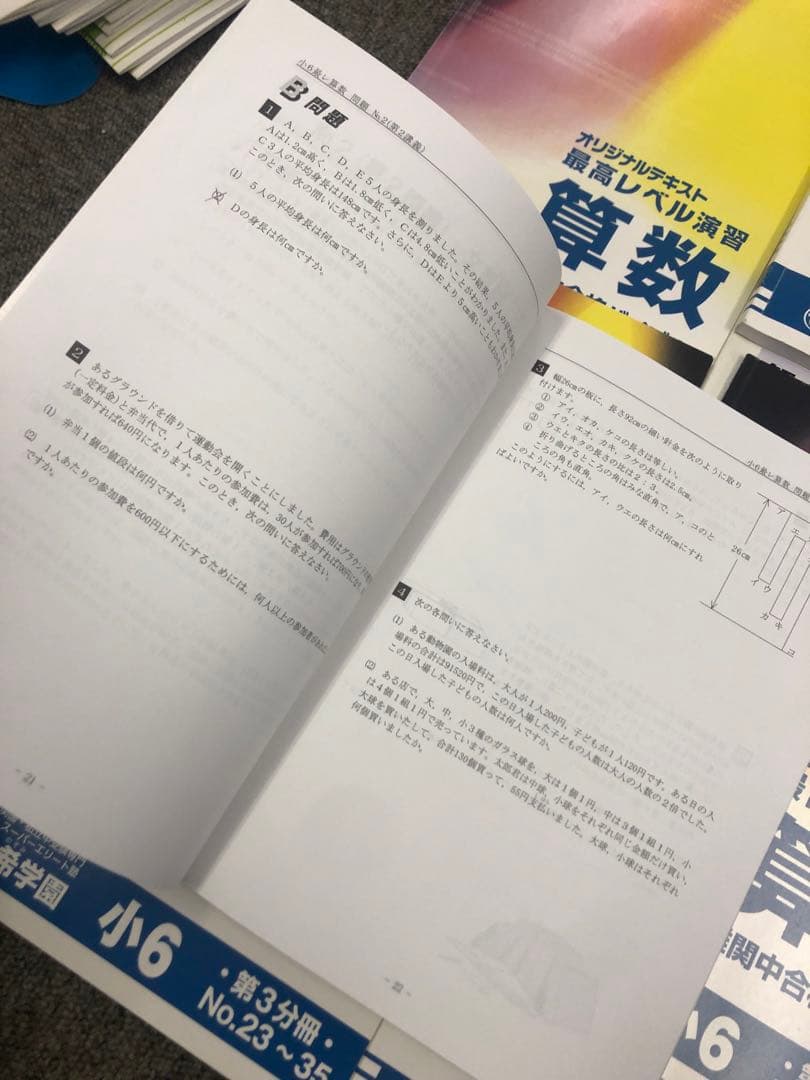 小6最レ算数 問題 №2(第2講義)
B問題
1 A，B，C，D，E5人の身長を測りました。その結果，5人の平均身長
Aは1.2cm高く，Bは1.8cm低く，Cは4.8cm低いことがわかりました。また，
C3人の平均身長は148cmです。さらに，DはEより5cm高いことも
このとき，次の問いに答えなさい。
(1) 5人の平均身長は何cmですか。
(2) Dの身長は何cmですか。
2 あるグラウンドを借りて運動会を開くことにしました。費用はグラウンド
(一定料金)と弁当代で，1人あたりの参加費は，30人が参加すれば700円
が参加すれば640円になります。このとき，次の問いに答えなさい。
(1) 弁当1個の値段は何円ですか。
(2) 1人あたりの参加費を600円以下にするためには，何人以上の参加者が
ですか。
- 21 -
小6最レ算数 問題
3 幅26cmの板に，長さ92cmの細い針金を次のように取り
付けます。
① アイ，オカ，ケコの長さは等しい。
② イウ，エオ，カキ，クケの長さは2.5cm。
③ ウエとキクの長さの比は2：3。
④ 折り曲げるところの角はみな直角で，ア，コのと
ころの角も直角。
このようにするには，アイ，ウエの長さは何cmにすれ
ばよいですか。
ア
エ
26cm
イ ウ
カ キ
コ
4 次の各問いに答えなさい。
(1) ある動物園の入場料は，大人が1人200円，子どもが1人120円です。ある日の入
場料の合計は91520円で，この日入場した子どもの人数は大人の人数の2倍でした。
この日入場した子どもの人数は何人ですか。
(2) ある店で，大，中，小3種のガラス球を，大は1個1円，中は3個1組1円，小
は4個1組1円で売っています。太郎君は中球，小球をそれぞれ同じ金額だけ買い，
大球を買いたして，合計130個買って，55円支払いました。大球，小球はそれぞれ
何個買いましたか。
- 22 -
オリジナルテキスト
最高レベル演習
算数
スーパーエリート塾
希学園
小6
・第3分冊・
No.23～35
算
関中合
小6